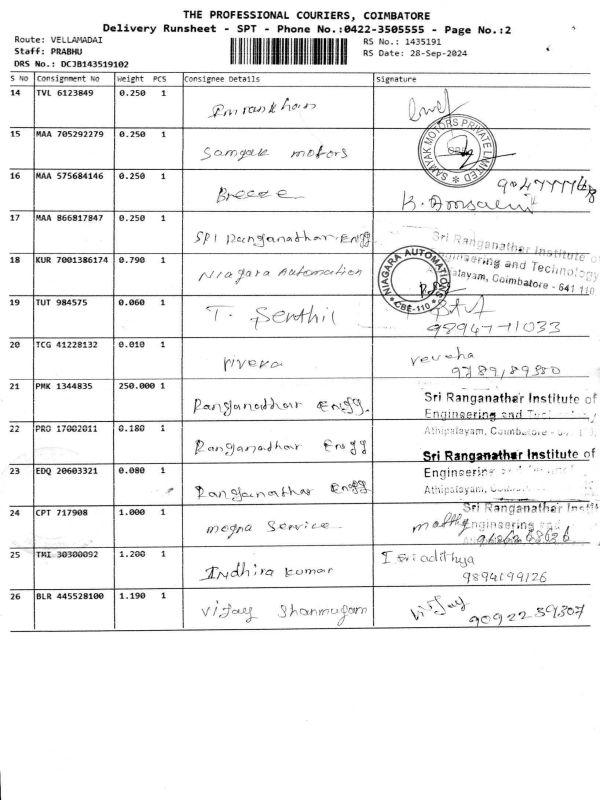 THE PROFESSIONAL COURIERS, COIMBATORE
Delivery Runsheet - SPT - Phone No.:0422-3505555 - Page No.:2
Route: VELLAMADAI
Staff: PRABHU
DRS No.: DCJB143519102
RS No.: 1435191
RS Date: 28-Sep-2024
S No Consignment No Weight PCS Consignee Details Signature
14 TVL 6123849 0.250 1 Imrankhan
15 MAA 705292279 0.250 1 Samyak motors
SAMYAK MOTORS PRIVATE LIMITED
16 MAA 575684146 0.250 1 Breeze
17 MAA 866817847 0.250 1 SRI Ranganathar Engg
Sri Ranganathar Institute of
Engineering and Technology
Athipalayam, Coimbatore - 641 110
18 KUR 7001386174 0.790 1 Niagara Automation
NIAGARA AUTOMATIONS
CBE-110
19 TUT 984575 0.060 1 T. Senthil
98947-11033
20 TCG 41228132 0.010 1 rivera
9789189380
21 PMK 1344835 250.000 1 Ranganathar Engg.
Sri Ranganathar Institute of
Engineering and
Athipalayam, Coimbatore -
22 PRO 17002011 0.180 1 Ranganathar Engg
Sri Ranganathar Institute of
23 EDQ 20603321 0.080 1 Ranganathar Engg
Engineering
Athipalayam,
24 CPT 717908 1.000 1 magna Service
Sri Ranganathar Institute
Engineering and
25 TMI 30300092 1.200 1 Indhira kumar
9894699126
26 BLR 445528100 1.190 1 Vijay Shanmugam Vijay
9092259307